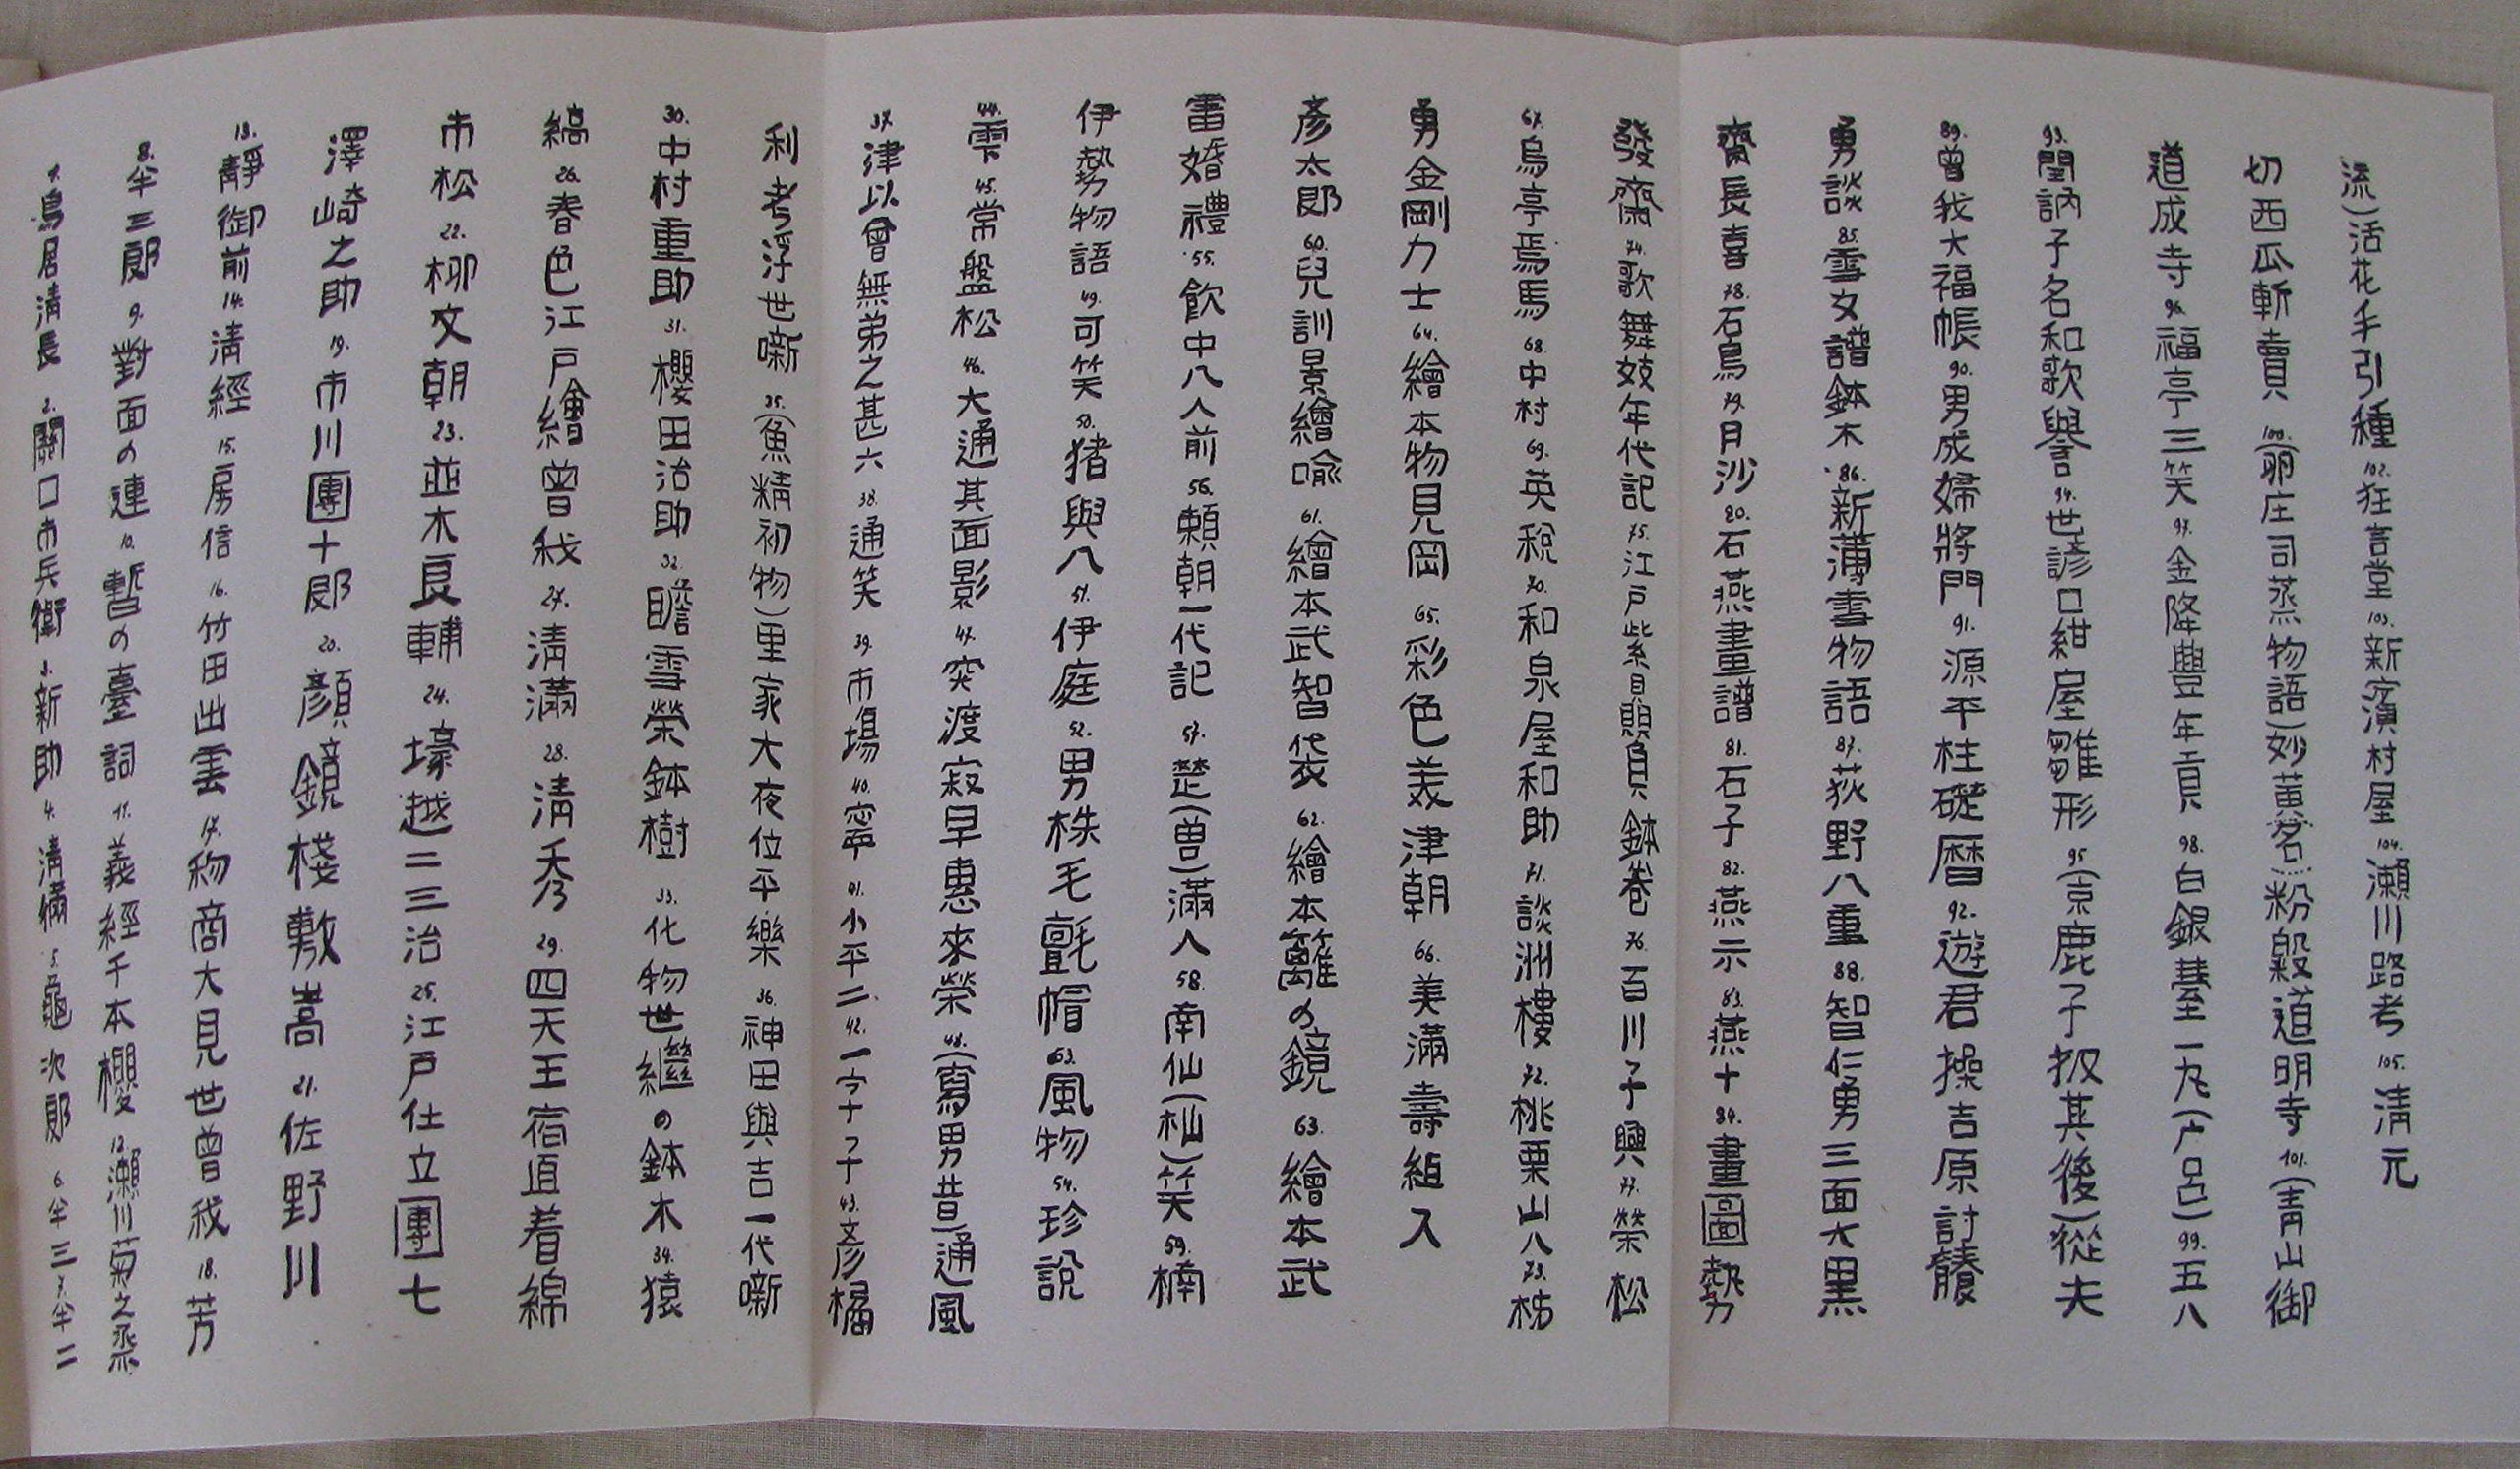 1. 鳥居淸長 2. 關口市兵衞 3. 新助 4. 淸滿 5. 龜次郞 6. 半三 7. 半二
8. 半三郞 9. 對面の連 10. 暫の臺詞 11. 義經千本櫻 12. 瀨川菊之丞
13. 靜御前 14. 淸經 15. 房信 16. 竹田出雲 17. 物商大見世曾我 18. 芳
澤崎之助 19. 市川團十郞 20. 顏鏡棧敷嵩 21. 佐野川
市松 22. 柳文朝 23. 並木良輔 24. 壕越二三治 25. 江戶仕立團七
縞 26. 春色江戶繪曾我 27. 淸滿 28. 淸秀 29. 四天王宿直着綿
30. 中村重助 31. 櫻田治助 32. 瞻雪榮鉢樹 33. 化物世繼の鉢木 34. 猿
利考浮世噺 35. (魚精初物)里家大夜位平樂 36. 神田與吉一代噺
37. 津以曾無弟之甚六 38. 通笑 39. 市場 40. 寧 41. 小平二 42. 一字十子 43. 文彥橘
44. 雫 45. 常盤松 46. 大通其面影 47. 突渡寂早惠來榮 48. (寫男昔)通風
伊勢物語 49. 可笑 50. 猪與八 51. 伊庭 52. 男株毛氈帽 53. 風物 54. 珍說
雷婚禮 55. 飮中八人前 56. 賴朝一代記 57. 楚(曽)滿人 58. 南仙(杣)笑 59. 楠
彥太郞 60. 兒訓景繪喩 61. 繪本武智袋 62. 繪本籬の鏡 63. 繪本武
勇金剛力士 64. 繪本物見岡 65. 彩色美津朝 66. 美滿壽組入
67. 烏亭焉馬 68. 中村 69. 英稅 70. 和泉屋和助 71. 談洲樓 72. 桃栗山八 73. 枋
發齋 74. 歌舞妓年代記 75. 江戶紫贔負鉢卷 76. 百川子興 77. 榮松
齋長喜 78. 石鳥 79. 月沙 80. 石燕畫譜 81. 石子 82. 燕示 83. 燕十 84. 畫圖勢
勇談 85. 雪女譜鉢木 86. 新薄雪物語 87. 荻野八重 88. 智仁勇三面大黑
89. 曾我大福帳 90. 男成婦將門 91. 源平柱礎暦 92. 遊君操吉原討鬢
93. 閏訥子名和歌譽 94. 世諺口紺屋雛形 95. (京鹿子扱其後)從夫
道成寺 96. 福亭三笑 97. 金降豐年貢 98. 白銀臺一九(广呂) 99. 五八
切西瓜斬賣 100. (翁庄司蒸物語)妙黃茗粉穀道明寺 101. (靑山御
流)活花手引種 102. 狂言堂 103. 新濱村屋 104. 瀨川路考 105. 淸元